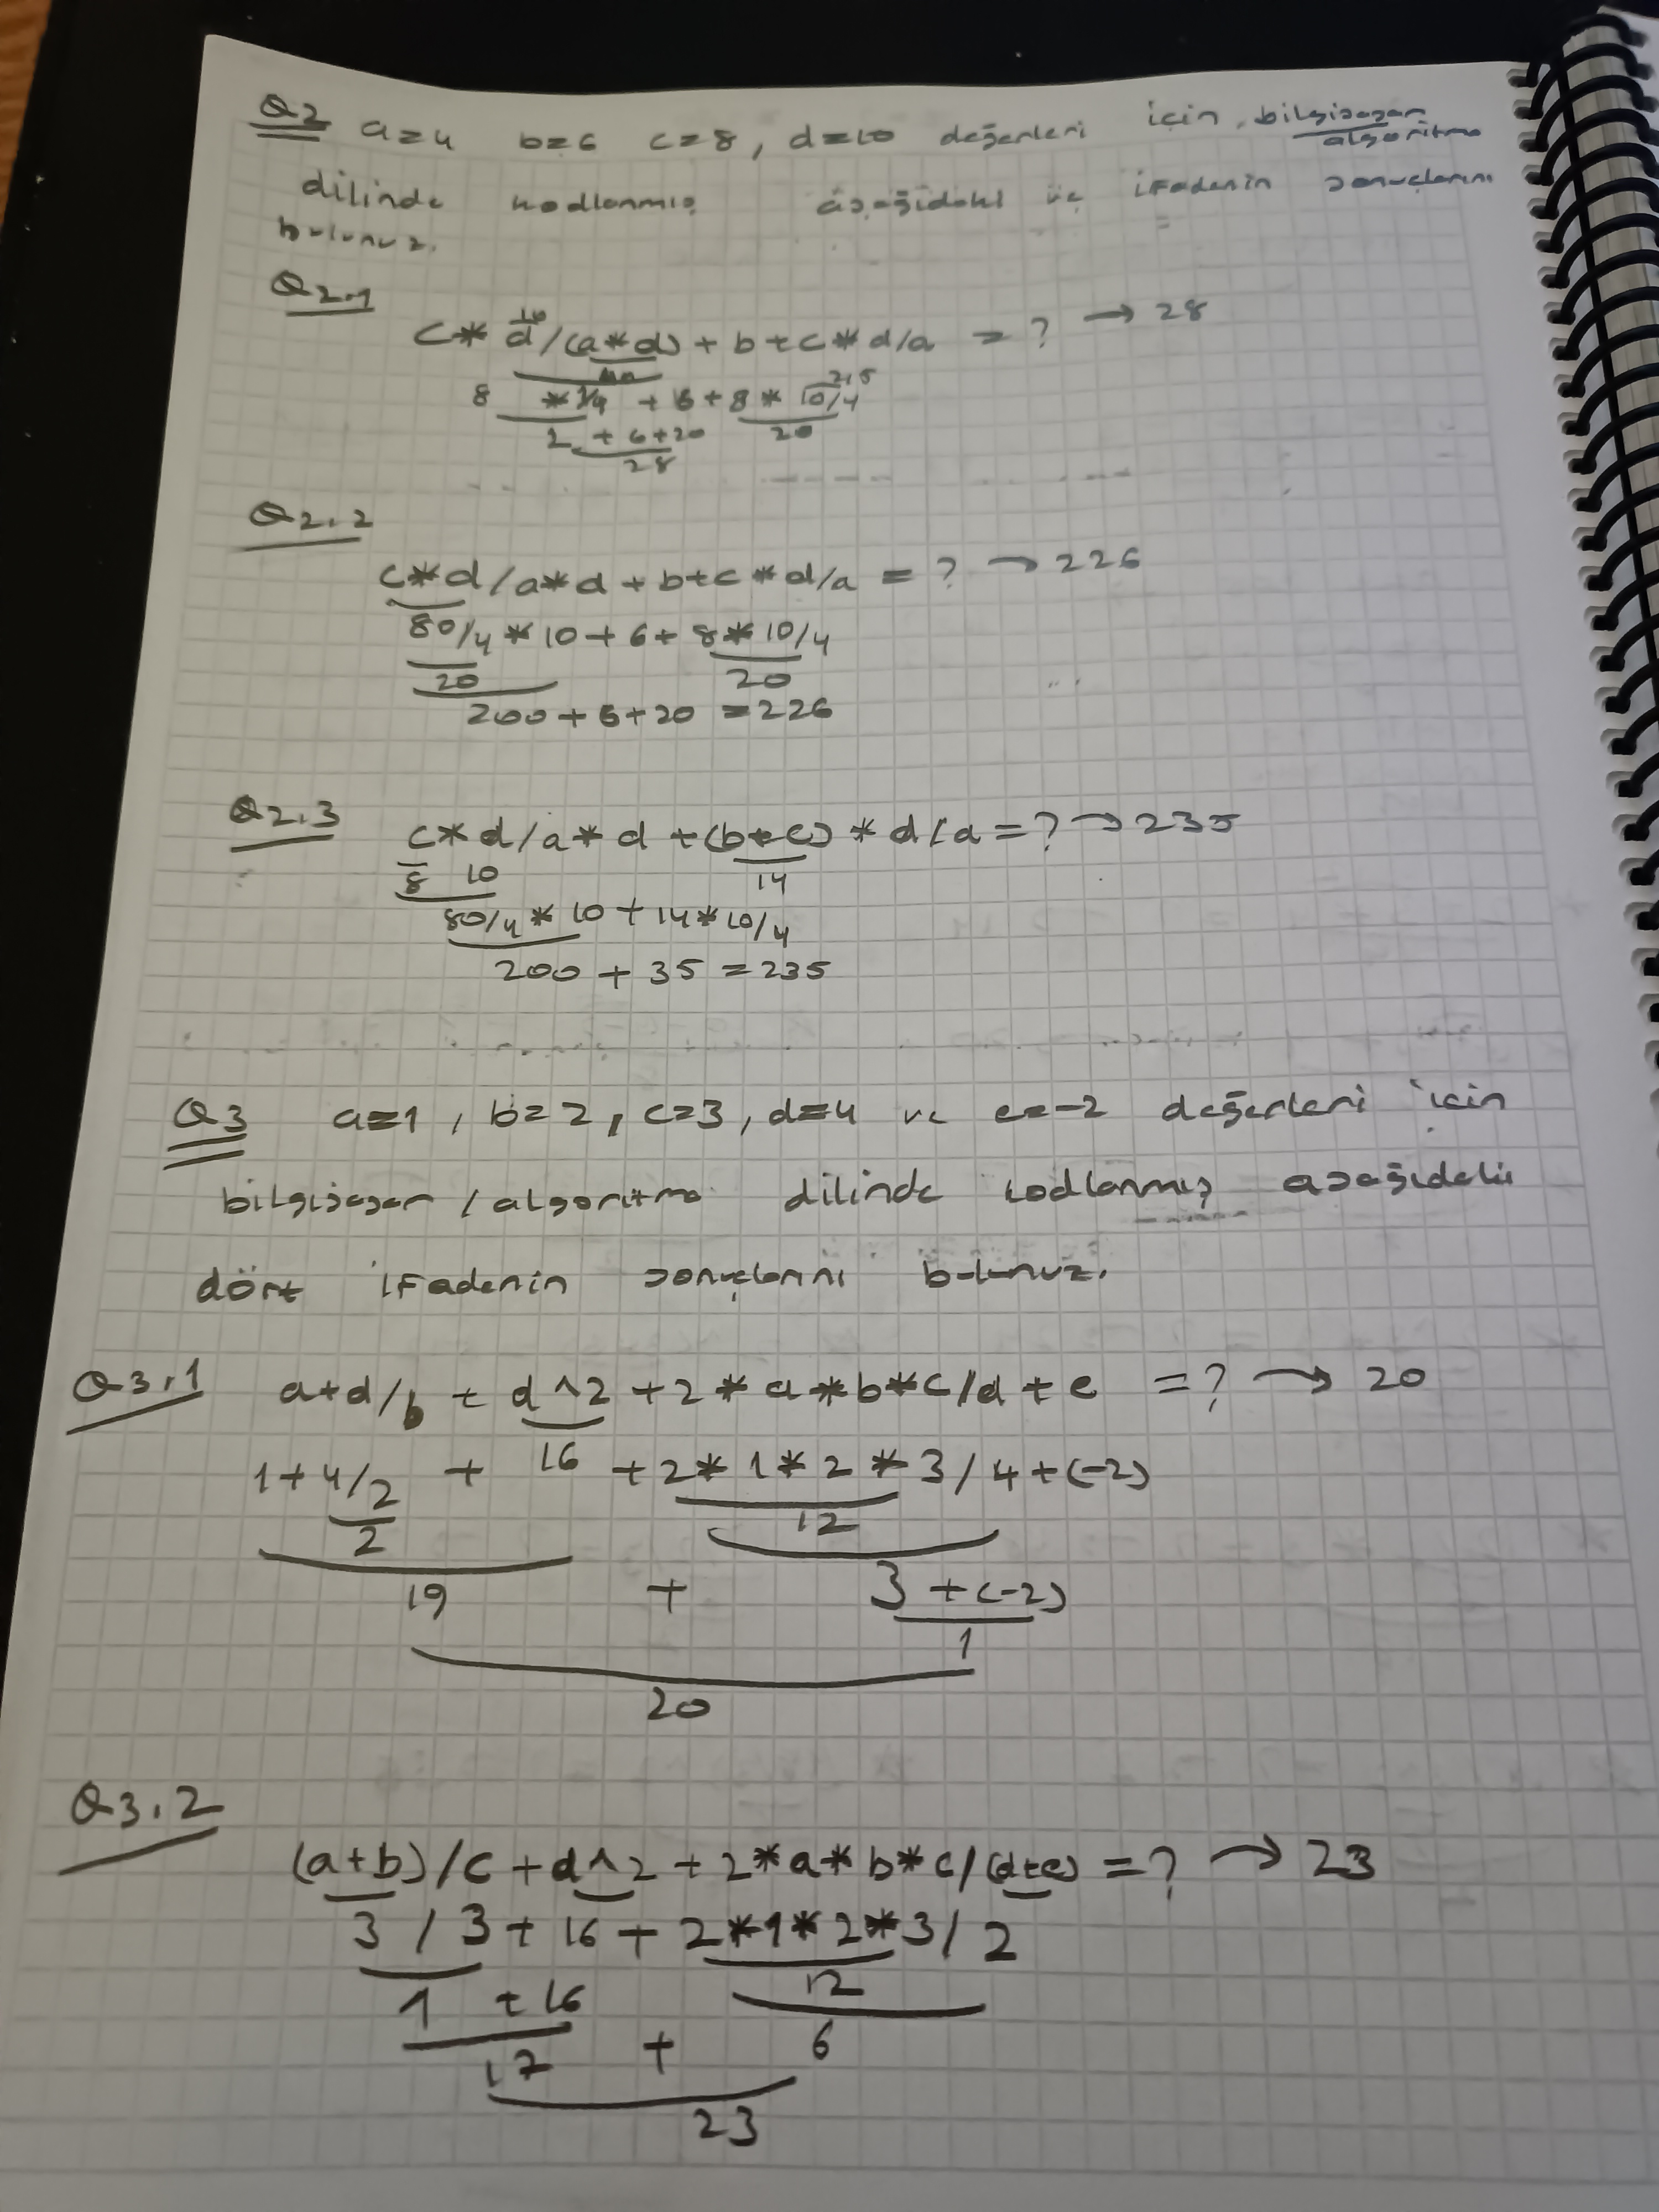 Q2 a=4 b=6 c=8, d=10 değerleri için, bilgisayar
algoritma
dilinde kodlanmış aşağıdaki üç ifadenin sonuçlarını
bulunuz.
Q2.1
c* d/(a*d) + b+c*d/a = ? → 28
10
40
2,5
8 *1/4 + 6 + 8 * 10/4
2 + 6+20 20
28
Q2.2
c*d/a*d + b+c*d/a = ? → 226
80/4 * 10 + 6 + 8*10/4
20 20
200 + 6+20 = 226
Q2.3 c*d/a*d +(b+c)*d/a=? → 235
8 10 14
80/4 * 10 + 14*10/4
200 + 35 = 235
Q3 a=1, b=2, c=3, d=4 ve e=-2 değerleri için
bilgisayar / algoritma dilinde kodlanmış aşağıdaki
dört ifadenin sonuçlarını bulunuz.
Q3.1 a+d/b + d^2 +2*a*b*c/d+e =? → 20
1+4/2 + 16 +2*1*2*3/4+(-2)
2 12
19 + 3 +(-2)
1
20
Q3.2
(a+b)/c+d^2+2*a*b*c/(d+e)=? → 23
3 / 3+16+2*1*2*3/2
1 +16 12
17 + 6
23